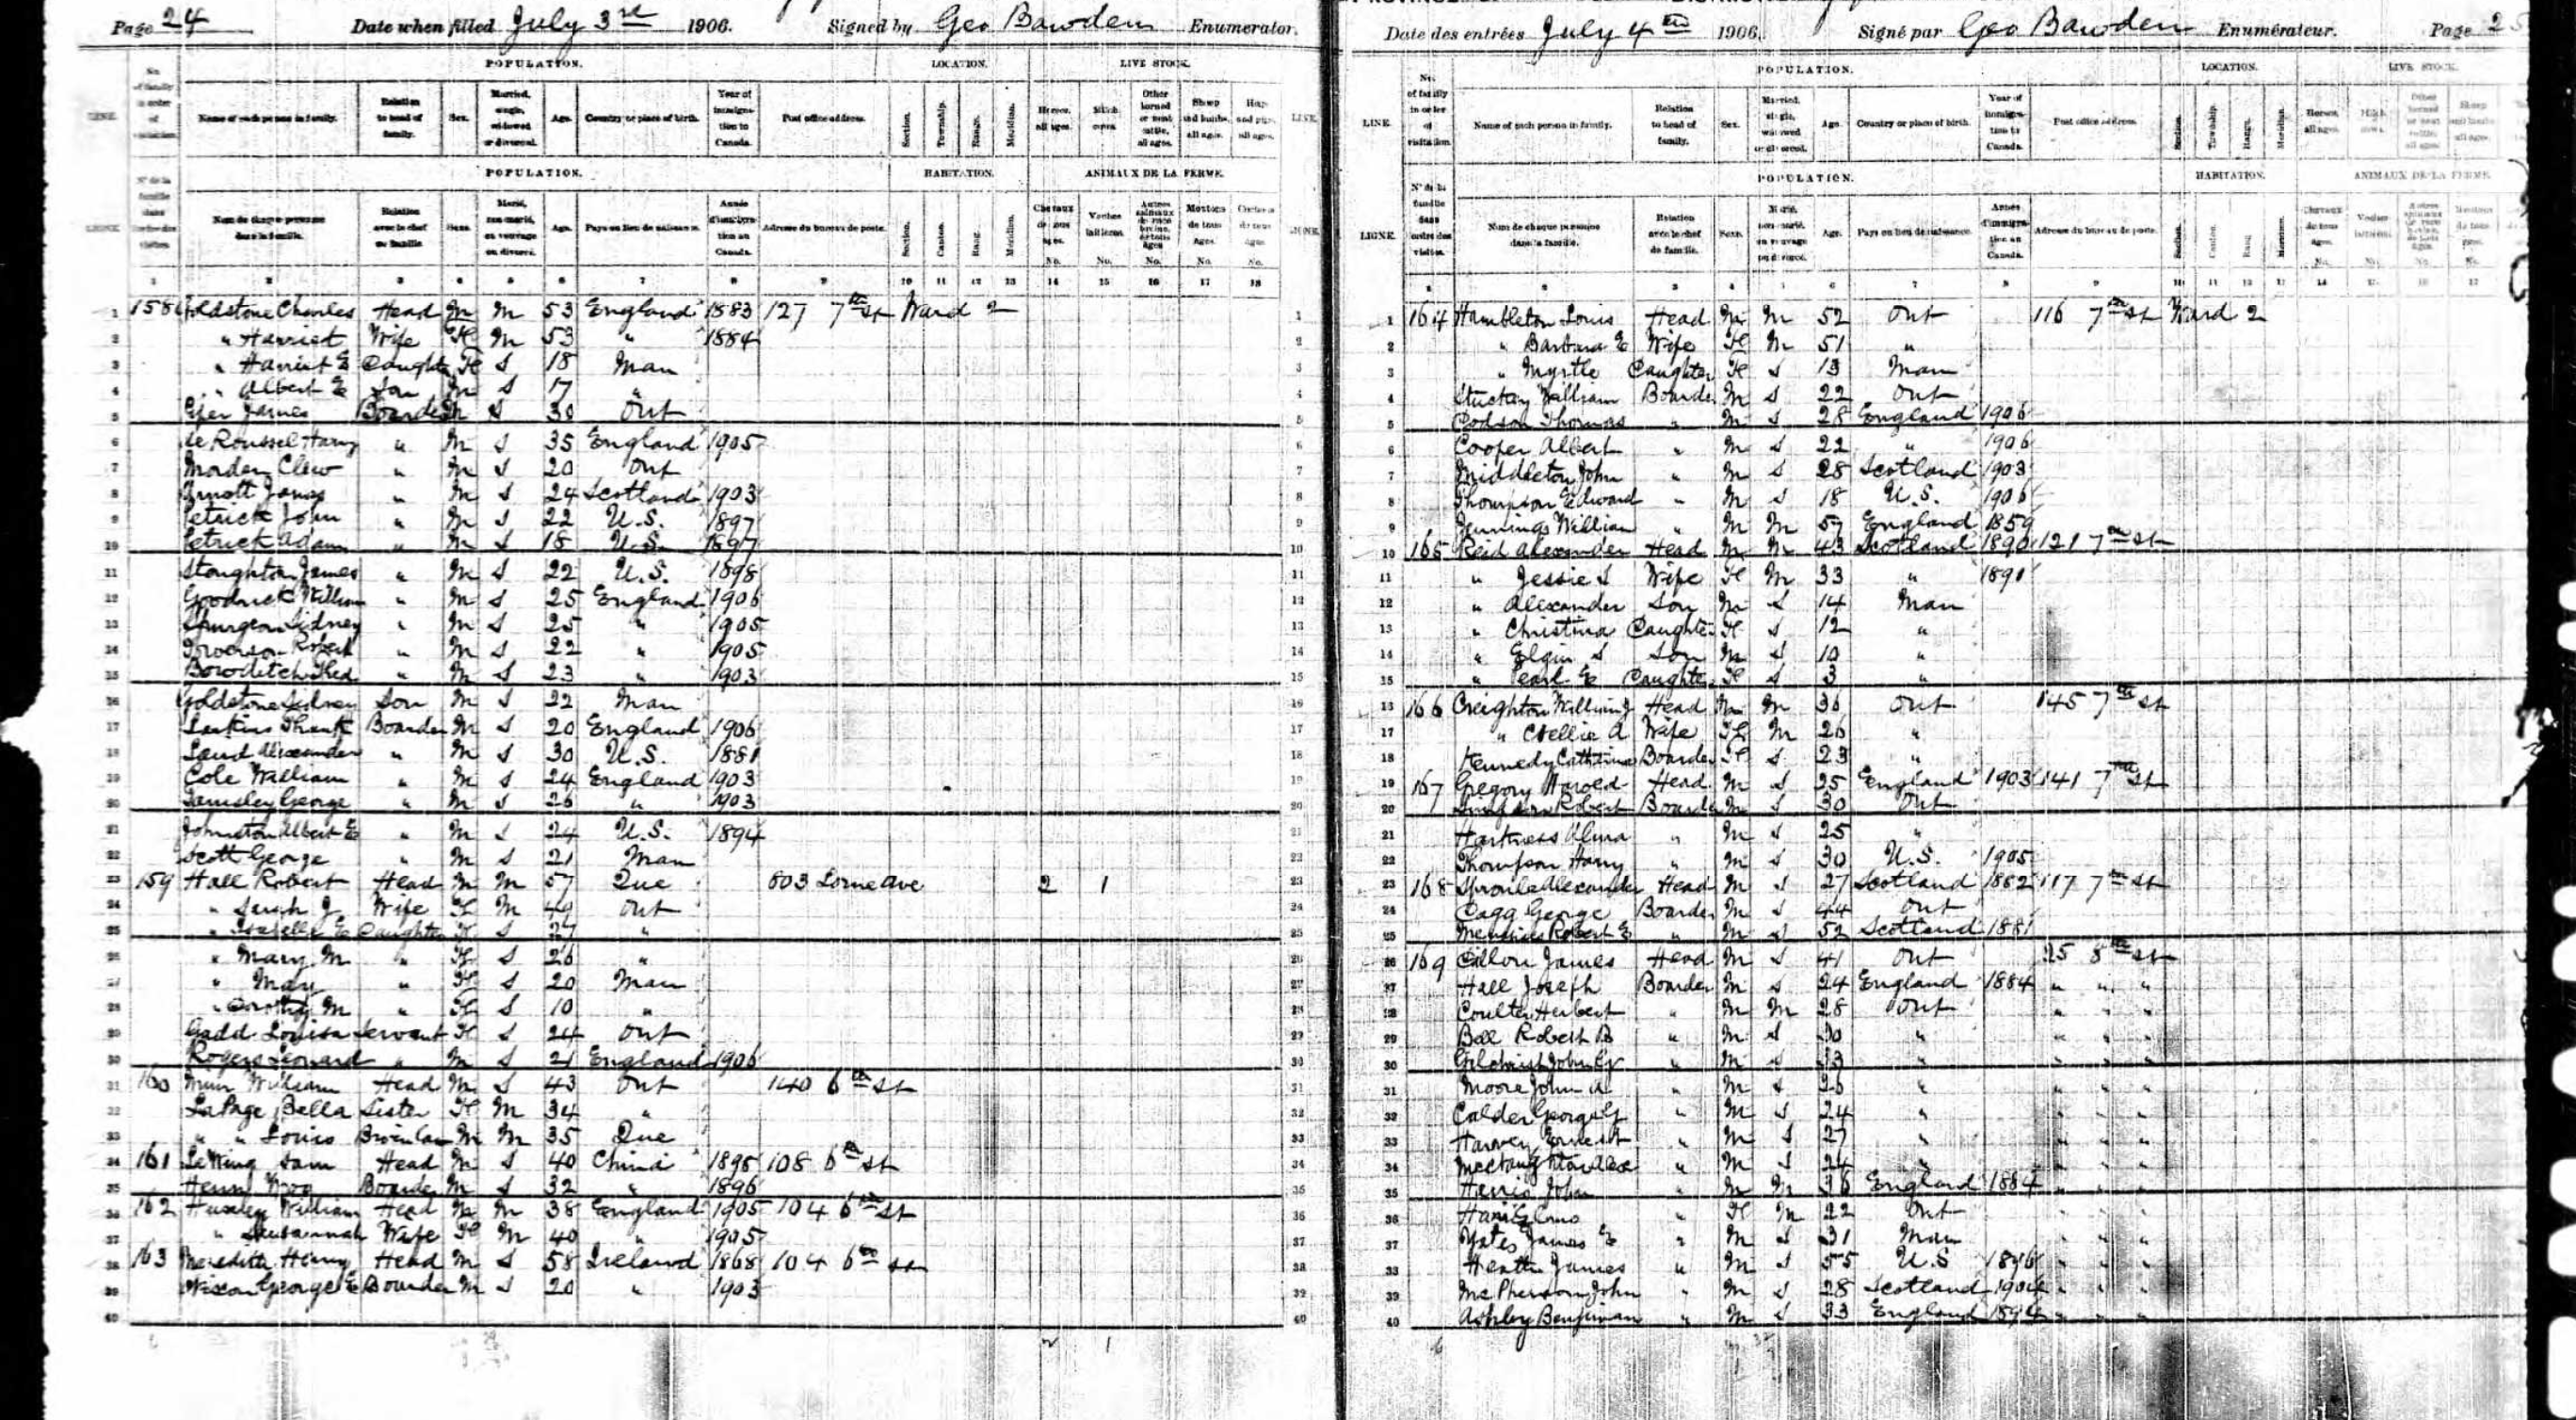 Page 24 Date when filled July 3rd 1906. Signed by Geo Bawden Enumerator.
POPULATION. LOCATION. LIVE STOCK.
Name of each person in family. Relation to head of family. Sex. Married, single, widowed or divorced. Age. Country or place of birth. Year of immigration to Canada. Post office address. Section. Township. Range. Meridian. Horses, all ages. Milch cows. Other horned or neat cattle, all ages. Sheep and lambs, all ages.
POPULATION. HABITATION. ANIMAUX DE LA FERME.
1 158 Goldstone Charles Head M M 53 England 1883 127 7th st Ward 2
2 " Harriet Wife F M 53 " 1884
3 " Harriet E Daughter F S 18 Man
4 " Albert E Son M S 17 "
5 James Boarder M S 30 Ont
6 de Roussel Harry " M S 35 England 1905
7 Morden Clew " M S 20 Ont
8 Arnott James " M S 24 Scotland 1903
9 Petrick John " M S 22 U.S. 1897
10 Petrick Adam " M S 18 U.S. 1897
11 Stoughton James " M S 22 U.S. 1898
12 Goodrick William " M S 25 England 1906
13 Spurgeon Sidney " M S 25 " 1905
14 Robert " M S 22 " 1905
15 Bowditch Fred " M S 23 " 1903
16 Goldstone Sidney Son M S 22 Man
17 Larkins Frank Boarder M S 20 England 1906
18 Laud Alexander " M S 30 U.S. 1881
19 Cole William " M S 24 England 1903
20 George " M S 26 " 1903
21 Johnston Albert E " M S 24 U.S. 1894
22 Scott George " M S 21 Man
23 159 Hall Robert Head M M 57 Que 603 Lorne Ave 2 1
24 " Sarah J Wife F M 49 Ont
25 " Isabella E Daughter F S 27 "
26 " Mary M " F S 26 "
27 " May " F S 20 Man
28 " Dorothy M " F S 10 "
29 Gadd Louisa Servant F S 24 Ont
30 Rogers Leonard " M S 21 England 1906
31 160 Muir William Head M S 43 Ont 140 6th st
32 LaPage Bella Sister F M 34 "
33 " " Louis Broinlaw M M 35 Que
34 161 LeWing Sam Head M S 40 China 1895 108 6th st
35 Henry Boarder M S 32 " 1896
36 162 Huxley William Head M M 38 England 1905 104 6th st
37 " Susannah Wife F M 40 " 1905
38 163 Meredith Henry Head M S 58 Ireland 1868 104 6th st
39 Nixon George E Boarder M S 20 " 1903
40
2 1
Date des entrées July 4th 1906. Signé par Geo Bawden Enumérateur. Page 25
POPULATION. LOCATION. LIVE STOCK.
LINE. No. of family in order of visitation. Name of each person in family. Relation to head of family. Sex. Married, single, widowed or divorced. Age. Country or place of birth. Year of immigration to Canada. Post office address. Section. Township. Range. Meridian.
POPULATION. HABITATION. ANIMAUX DE LA FERME.
LIGNE. Nom de chaque personne dans la famille. Relation avec le chef de famille. Sexe. Age. Pays ou lieu de naissance. Adresse du bureau de poste.
1 164 Hambleton Louis Head M M 52 Ont 116 7th st Ward 2
2 " Barbara E Wife F M 51 "
3 " Myrtle Daughter F S 13 Man
4 William Boarder M S 22 Ont
5 Dodson Thomas " M S 28 England 1906
6 Cooper Albert " M S 22 " 1906
7 Middleton John " M S 28 Scotland 1903
8 Thompson Edward " M S 18 U.S. 1906
9 Jennings William " M M 57 England 1859
10 165 Reid Alexander Head M M 43 Scotland 1890 121 7th st
11 " Jessie S Wife F M 33 " 1891
12 " Alexander Son M S 14 Man
13 " Christina Daughter F S 12 "
14 " Elgin S Son M S 10 "
15 " Pearl E Daughter F S 3 "
16 166 Creighton William J Head M M 36 Ont 145 7th st
17 " Nellie A Wife F M 26 "
18 Kennedy Catherine Boarder F S 23 "
19 167 Gregory Harold Head M S 25 England 1903 141 7th st
20 Robert Boarder M S 30 Ont
21 Hartness Alma " M S 25 "
22 Thompson Harry " M S 30 U.S. 1905
23 168 Sproile Alexander Head M S 27 Scotland 1882 117 7th st
24 Dagg George Boarder M S 44 Ont
25 Menzies Robert E " M S 52 Scotland 1881
26 169 Dillon James Head M S 41 Ont 25 8th st
27 Hall Joseph Boarder M S 24 England 1884 " " "
28 Coulter Herbert " M M 28 Ont " " "
29 Bell Robert B " M S 30 " " " "
30 Gilchrist John G " M S 33 " " " "
31 Moore John A " M S 26 " " " "
32 Calder George G " M S 24 " " " "
33 Harvey Ernest " M S 27 " " " "
34 McNaughton Alex " M S 24 " " " "
35 Harris John " M M 36 England 1884 " " "
36 " F M 22 Ont " " "
37 Yates James E " M S 31 Man " "
38 Heath James " M S 55 U.S 1896 " " "
39 McPherson John " M S 28 Scotland 1904 " " "
40 Ashley Benjiman " M S 33 England 1894 " " "